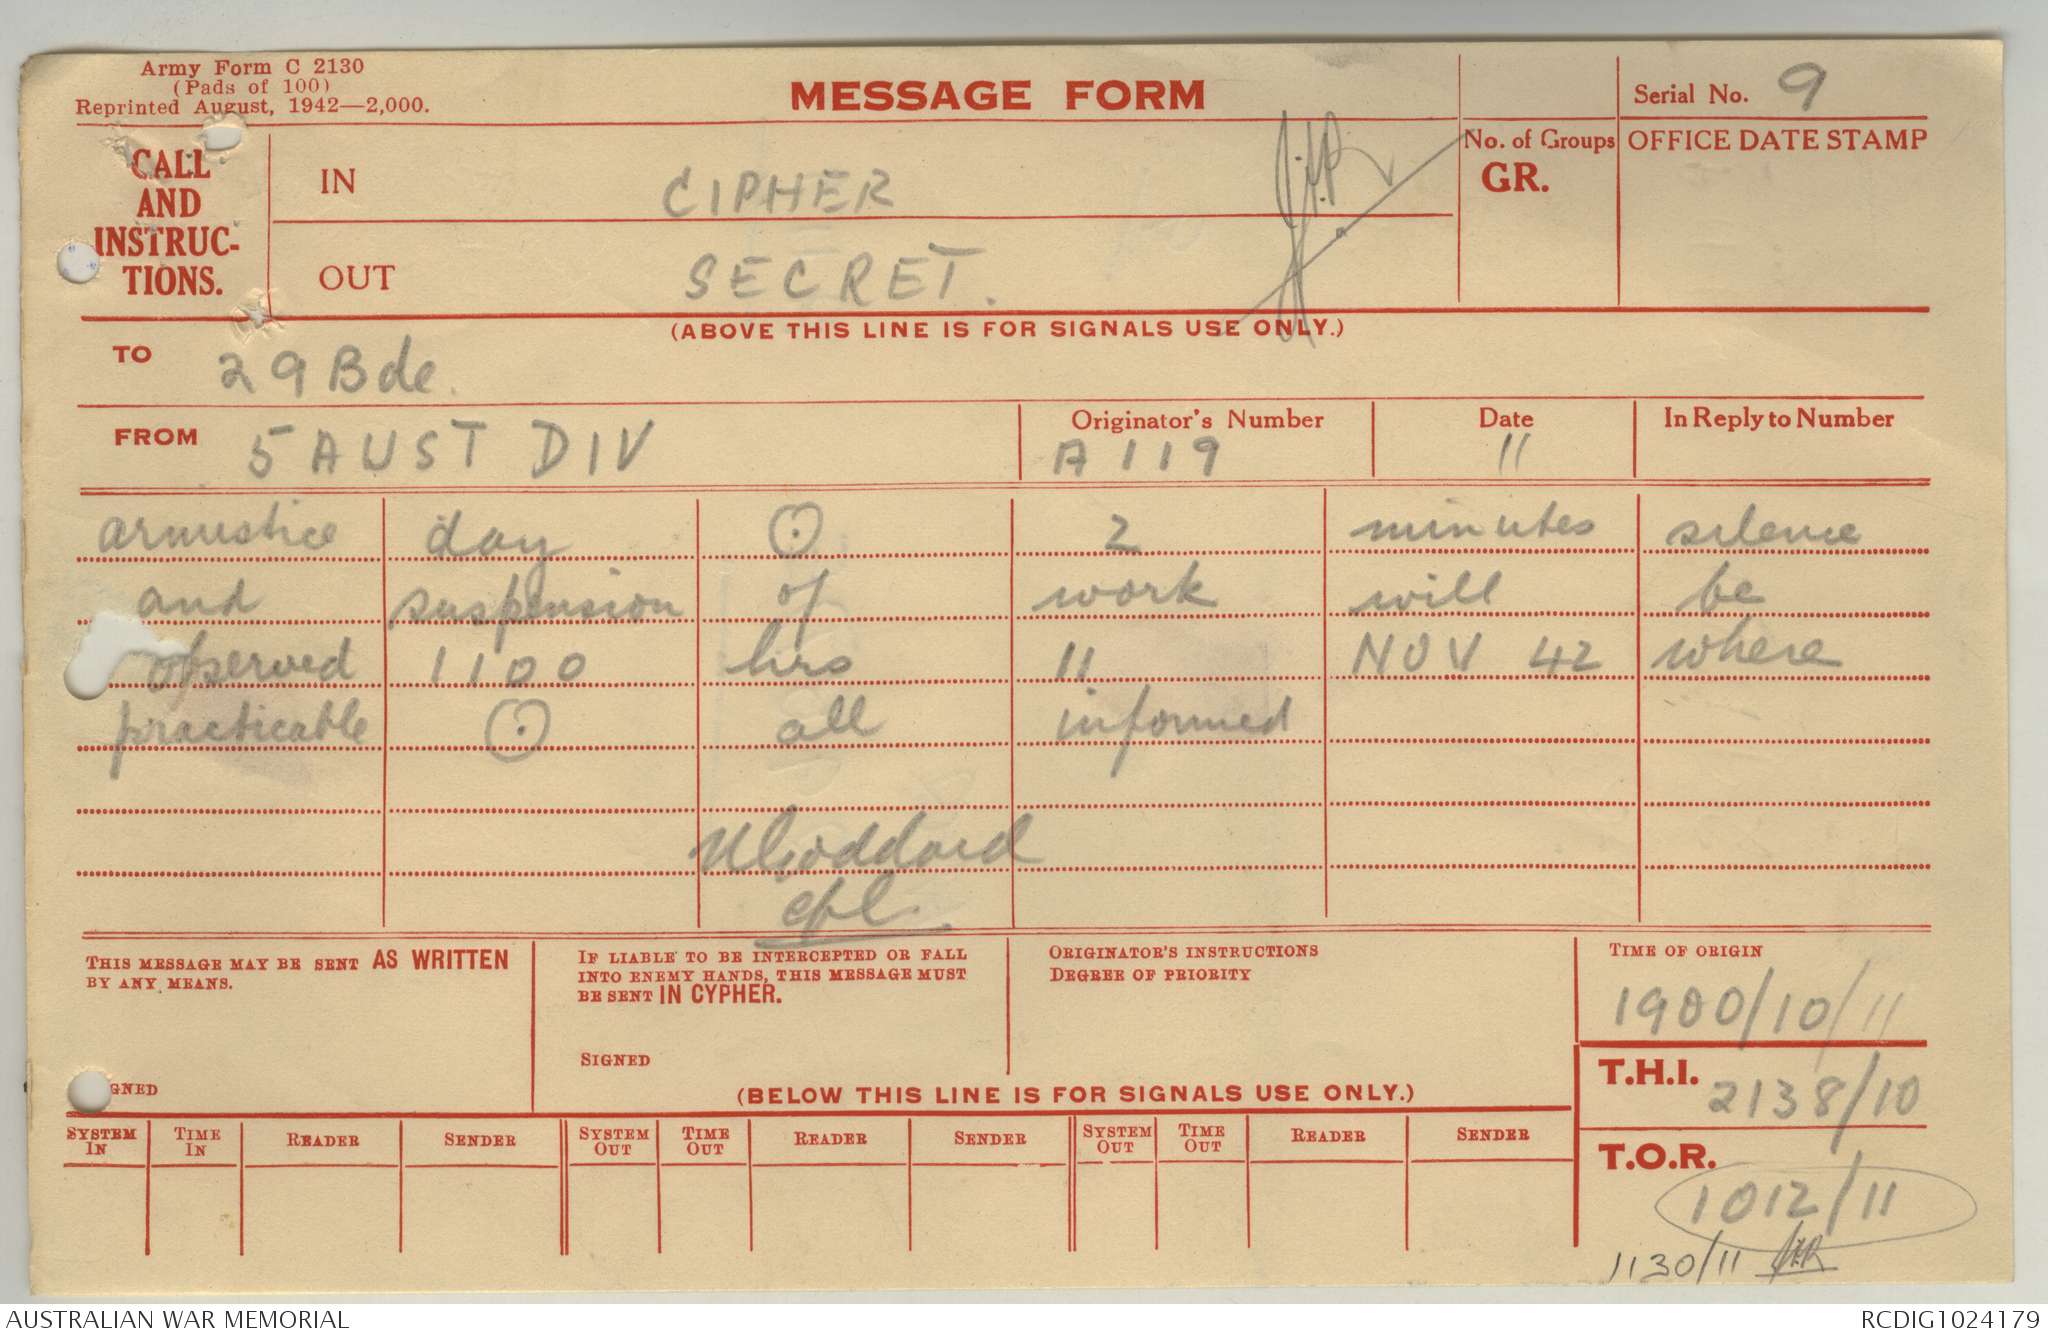 Army Form C 2130
(Pads of 100)
Reprinted August, 1942—2,000.
MESSAGE FORM
Serial No. 9
CALL
AND
INSTRUC-
TIONS.
IN CIPHER
OUT SECRET.
No. of Groups
GR.
OFFICE DATE STAMP
(ABOVE THIS LINE IS FOR SIGNALS USE ONLY.)
TO 29 Bde.
FROM 5 AUST DIV
Originator's Number
A 119
Date
11
In Reply to Number
armistice day ⊙ 2 minutes silence
and suspension of work will be
observed 1100 hrs 11 NOV 42 where
practicable ⊙ all informed
Goddard
cpl.
THIS MESSAGE MAY BE SENT AS WRITTEN
BY ANY MEANS.
GNED
IF LIABLE TO BE INTERCEPTED OR FALL
INTO ENEMY HANDS, THIS MESSAGE MUST
BE SENT IN CYPHER.
SIGNED
ORIGINATOR'S INSTRUCTIONS
DEGREE OF PRIORITY
TIME OF ORIGIN
1900/10/11
T.H.I. 2138/10
T.O.R.
1012/11
1130/11
(BELOW THIS LINE IS FOR SIGNALS USE ONLY.)
SYSTEM IN TIME IN READER SENDER SYSTEM OUT TIME OUT READER SENDER SYSTEM OUT TIME OUT READER SENDER
AUSTRALIAN WAR MEMORIAL
RCDIG1024179